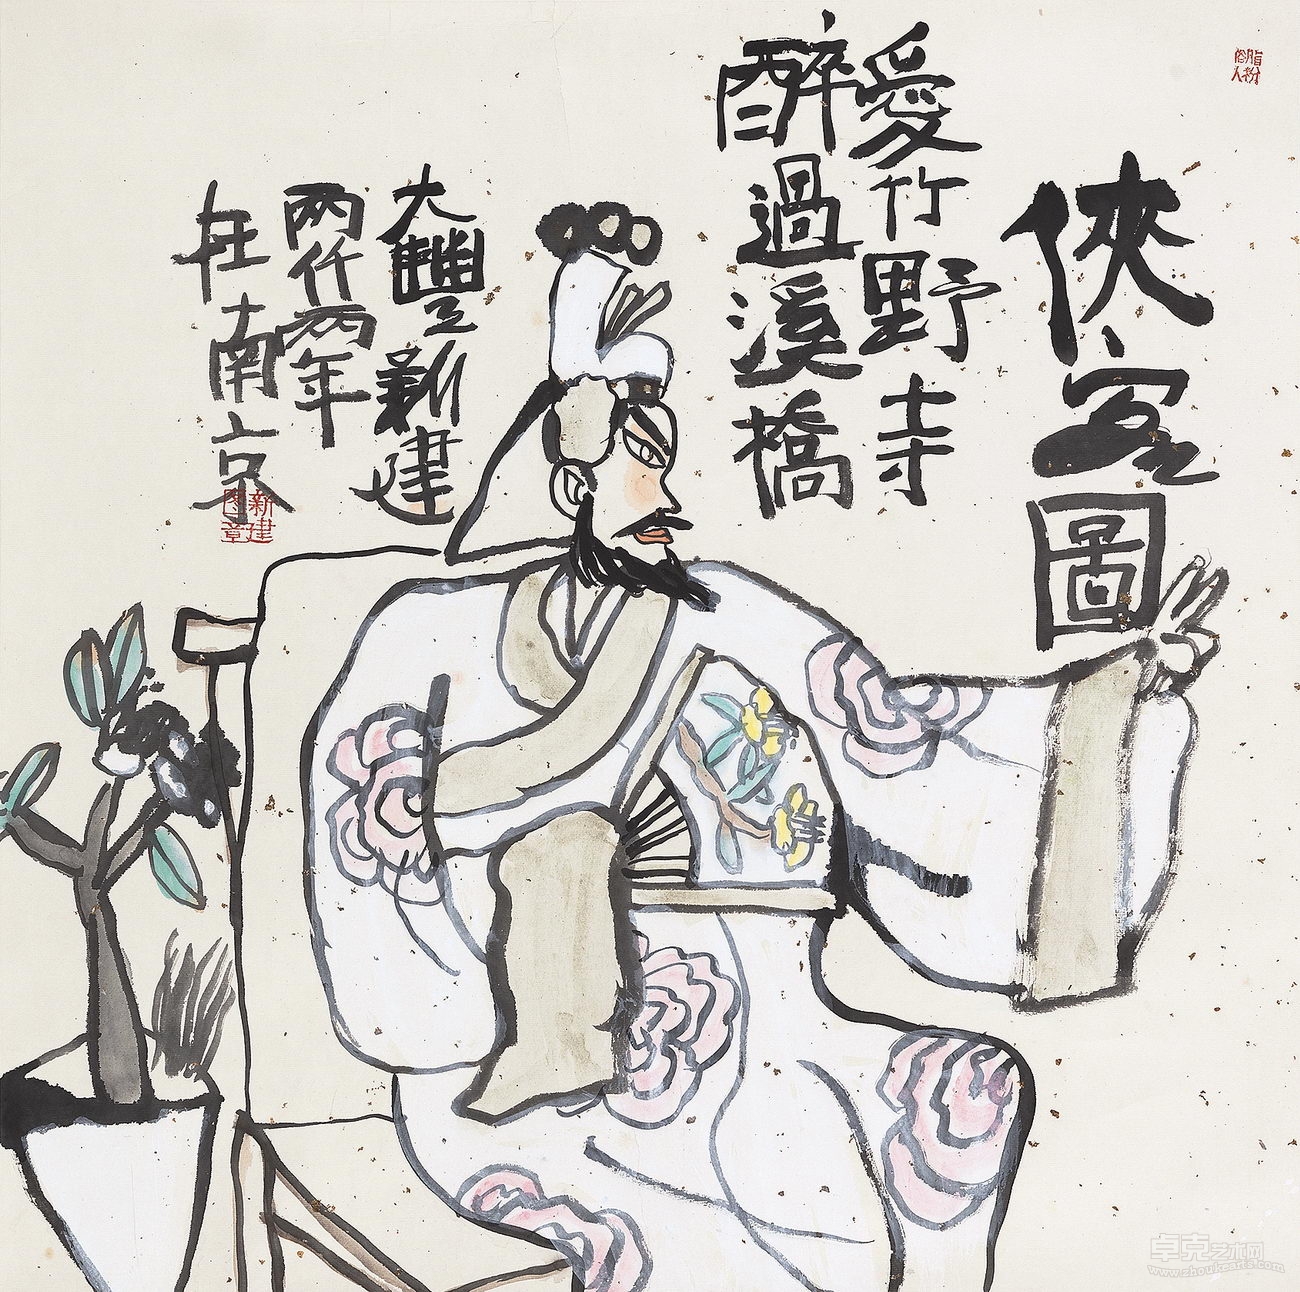 俠客圖
愛竹野寺
醉過溪橋
大豐新建
兩仟兩年
在南京
新建
圖章
脂粉
俗人
卓克艺术网
www.zhoukearts.com